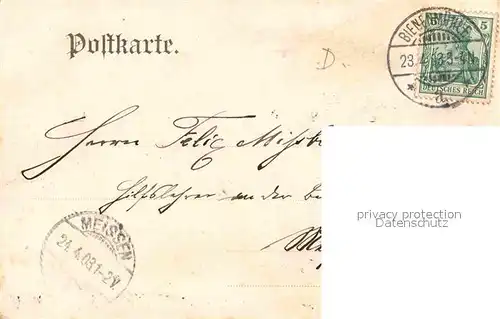 Postkarte.
D.
BIENENMÜHLE
23.4.03.3-4N.
5
DEUTSCHES REICH
Herrn Felix
Hilfslehrer an der
MEISSEN
24.4.03.1-2V.
privacy protection
Datenschutz